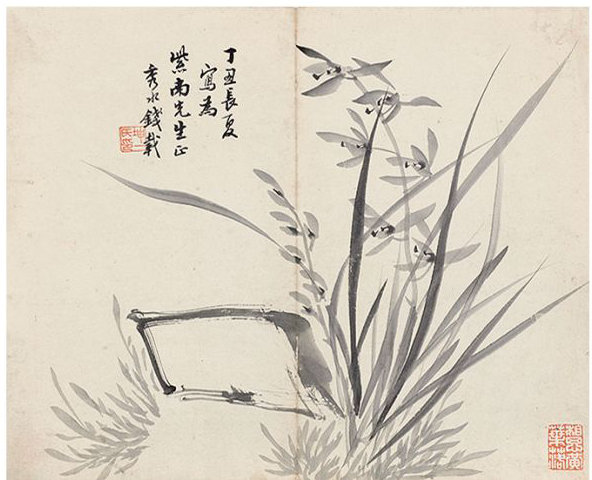 丁丑長夏
寫為
紫南先生正
秀水錢載